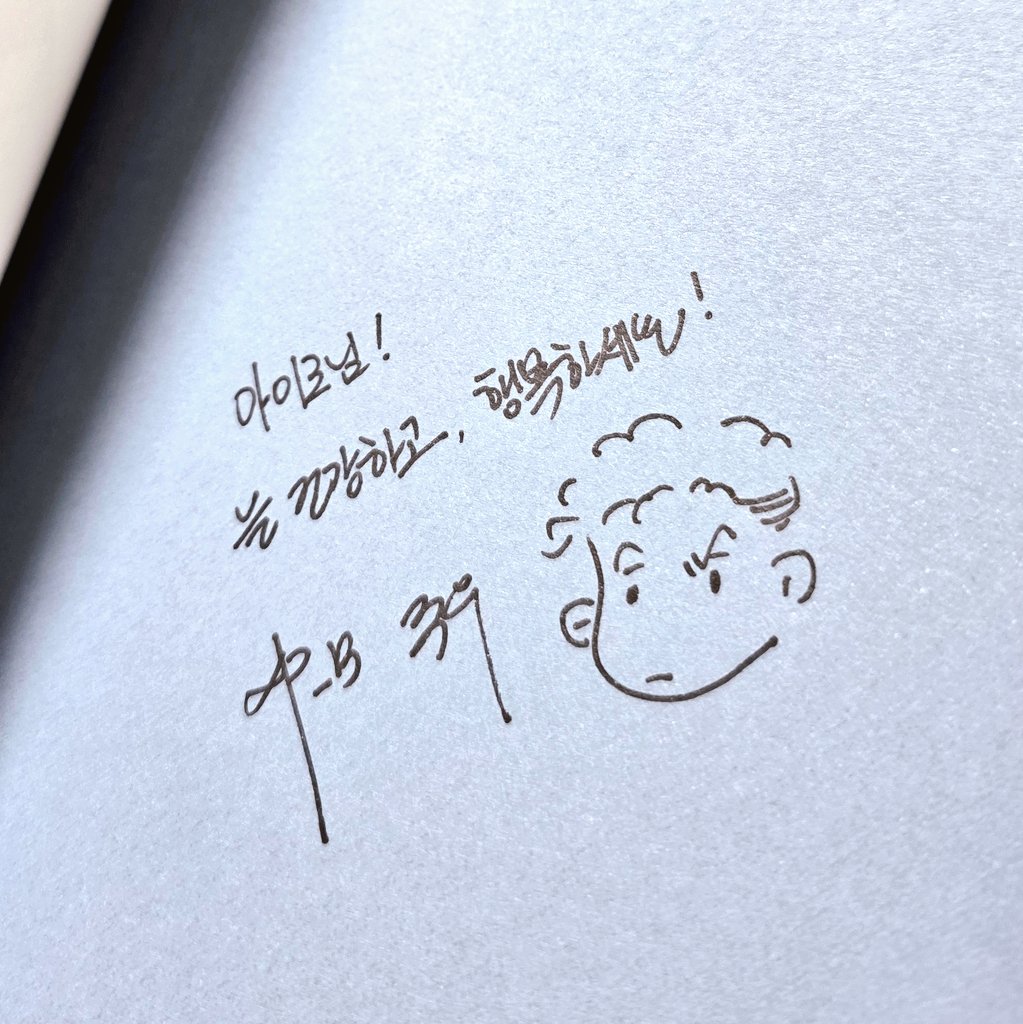 아이크님!
늘 건강하고, 행복하세요!